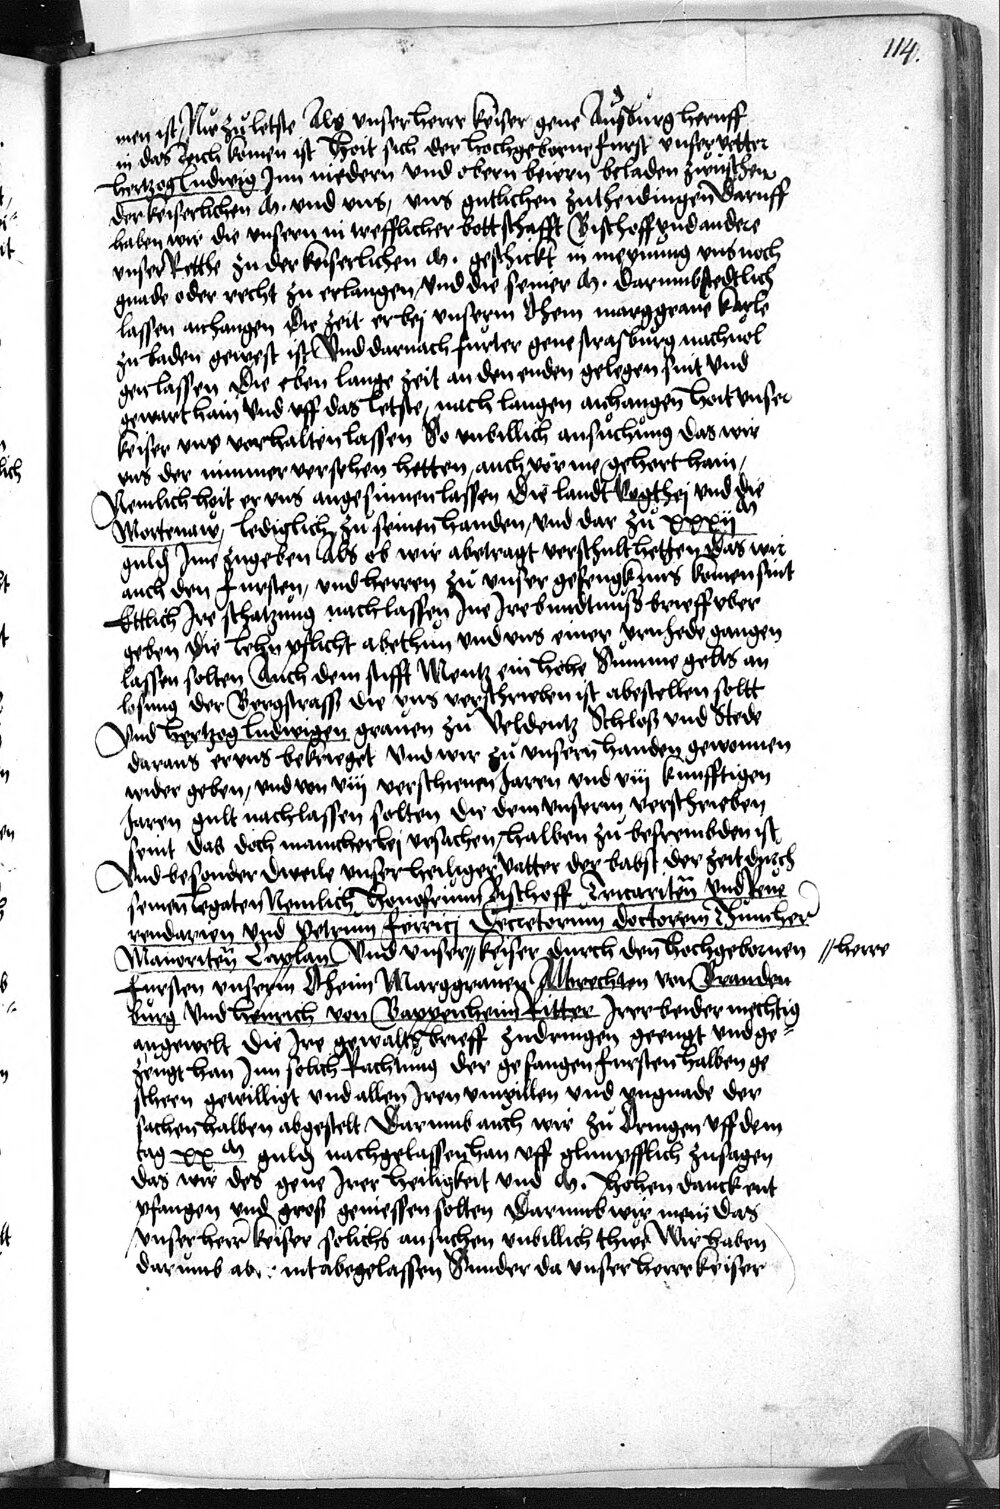 114.
men ist, Nu zu letste Als unser herr keiser gene Ausburg heruff
in das Reich komen ist Hoit sich der hochgeborne furst unser vetter
hertzog ludwig Inn niedern und obern beiern beladen zwuschen
der keiserlichen M. und uns, uns gutlichen zutheidingen Daruff
haben wir die unsern in trefflicher bottschafft Bischoff und andere
unser Rethe zu der keiserlichen M. geschickt in meynung uns noch
gnade oder recht zu erlangen, und die seiner M. darumb stedtlich
lassen anhangen Die zeit er bej unserm Ohem marggraue Karle
zu baden gewest ist Und darnach furter gene strasburg nachuol
gen lassen Die eben lange zeit an den enden gelegen sint und
gewart hain Und uff das letste, nach langen anhangen hoit unser
keiser uns vorhalten lassen So unbillich ansuchung das wir
uns der nimmer versehen hetten, auch vor nie gehort hain,
Nemlich hoit er uns angesinnen lassen Die landt Vogthej und die
Mortenaw, lediglich zu seinen handen, und dar zu xxxij M
guld Ime zugeben Als ob wir abetragt verschult hetten Das wir
auch den fursten, und herren zu unser gefengknus komen sint
Ettlich Ire schatzung nachlassen Ine Ire bundtnuss brieff uber
geben Die lehn pflicht abethun und uns einer urvhede gangen
lassen solten Auch dem stifft Mentz ein hohe Summe gelts an
losung der Bergstrass die uns verschrieben ist abestellen soltt
Und hertzog ludwigen grauen zu Veldentz Schloss und Stede
daraus er uns bekrieget Und wir zu unsern handen gewonnen
wider geben, und von viij verschienen Jaren und viij kunfftigen
Jaren gult nachlassen solten die dem unserm verschrieben
seint Das doch mancherlej ursachen, halben zu befrembden ist
Und besonder dweile unser heiliger Vatter der babst der zeit durch
seinen legaten Nemlich Honofrium Bischoff Tricariten und Reue
rendarien und Petrum ferrici Decretorum doctorem Thumher
Maioriten Caplan Und unser // keiser durch den hochgebornen // herre
fursten unserm Oheim Marggrauen Albrechten von Branden
burg Und heinrich von Bappenheim Ritter Irer beider mechtig
angewelt Die Ire gewalts brieff zudringen geengt und ge=
zeugt han Inn solich Rachtung der gefangen fursten halben ge
scheen gewilligt und allen Iren unwillen und ungnade der
sachen halben abgestelt Darumb auch wir zu Oringen uff dem
tag xx M guld nachgelassen han uff glimpfflich zusagen
das wir des gene Irer heiligkeit und M. hohen danck ent
pfangen und gros geniessen solten Darumb wir mein das
unser herr keiser solichs ansuchen unbillich thwe Wir haben
darumb nit abegelassen Sunder da unser herre keiser